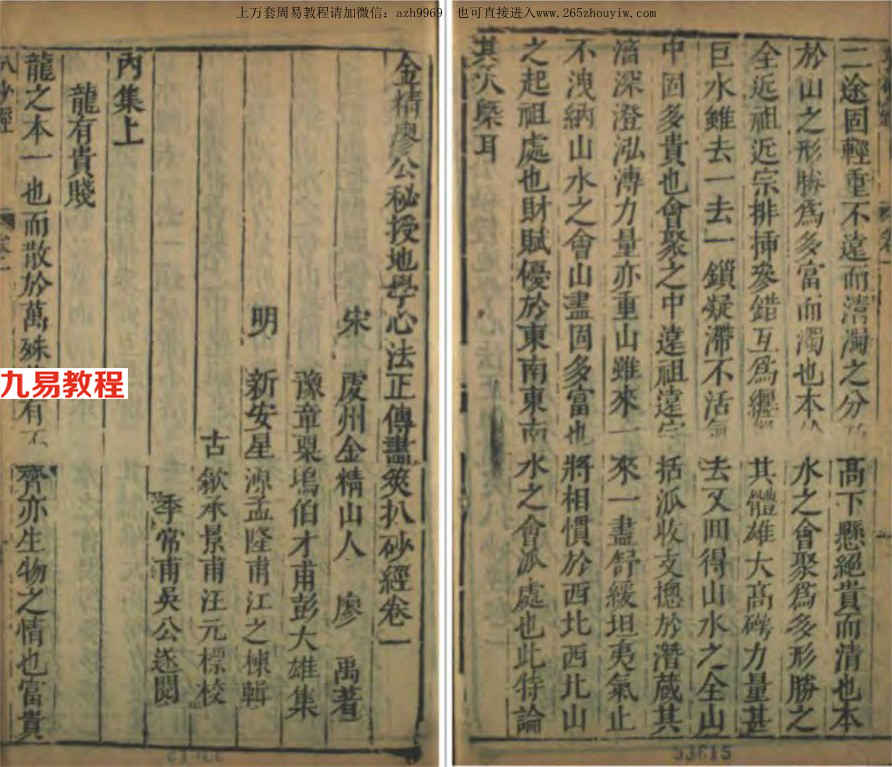 上万套周易教程请加微信：azh9969　也可直接进入www.265zhouyiw.com
金精廖公秘授地學心法正傳畫筴扒砂經卷一
宋　虔州金精山人　廖　禹著
豫章粟塢伯才甫彭大雄集
明　新安星源孟隆甫江之棟輯
古歙承景甫汪元標校
季常甫吳公遂閱
內集上
龍有貴賤
龍之本一也而散於萬殊有不齊亦生物之情也富貴
九易教程
二途固輕重不遠而清濁之分高下懸絕貴而清也本
於山之形勝爲多富而濁也本水之會聚爲多形勝之
全近祖近宗排揷參錯互爲纒其體雄大高磅力量甚
巨水雖去一去一鎖疑滯不活氣去又囬得山水之全山
中固多貴也會聚之中遠祖遠宗括派收支摠於潛蔵其
滀深澄泓溥力量亦重山雖來一來一盡舒緩坦夷氣止
不洩納山水之會山盡固多富也將相慣於西北西北山
之起祖處也財賦優於東南東南水之會派處也此特論
其大槩耳
53615